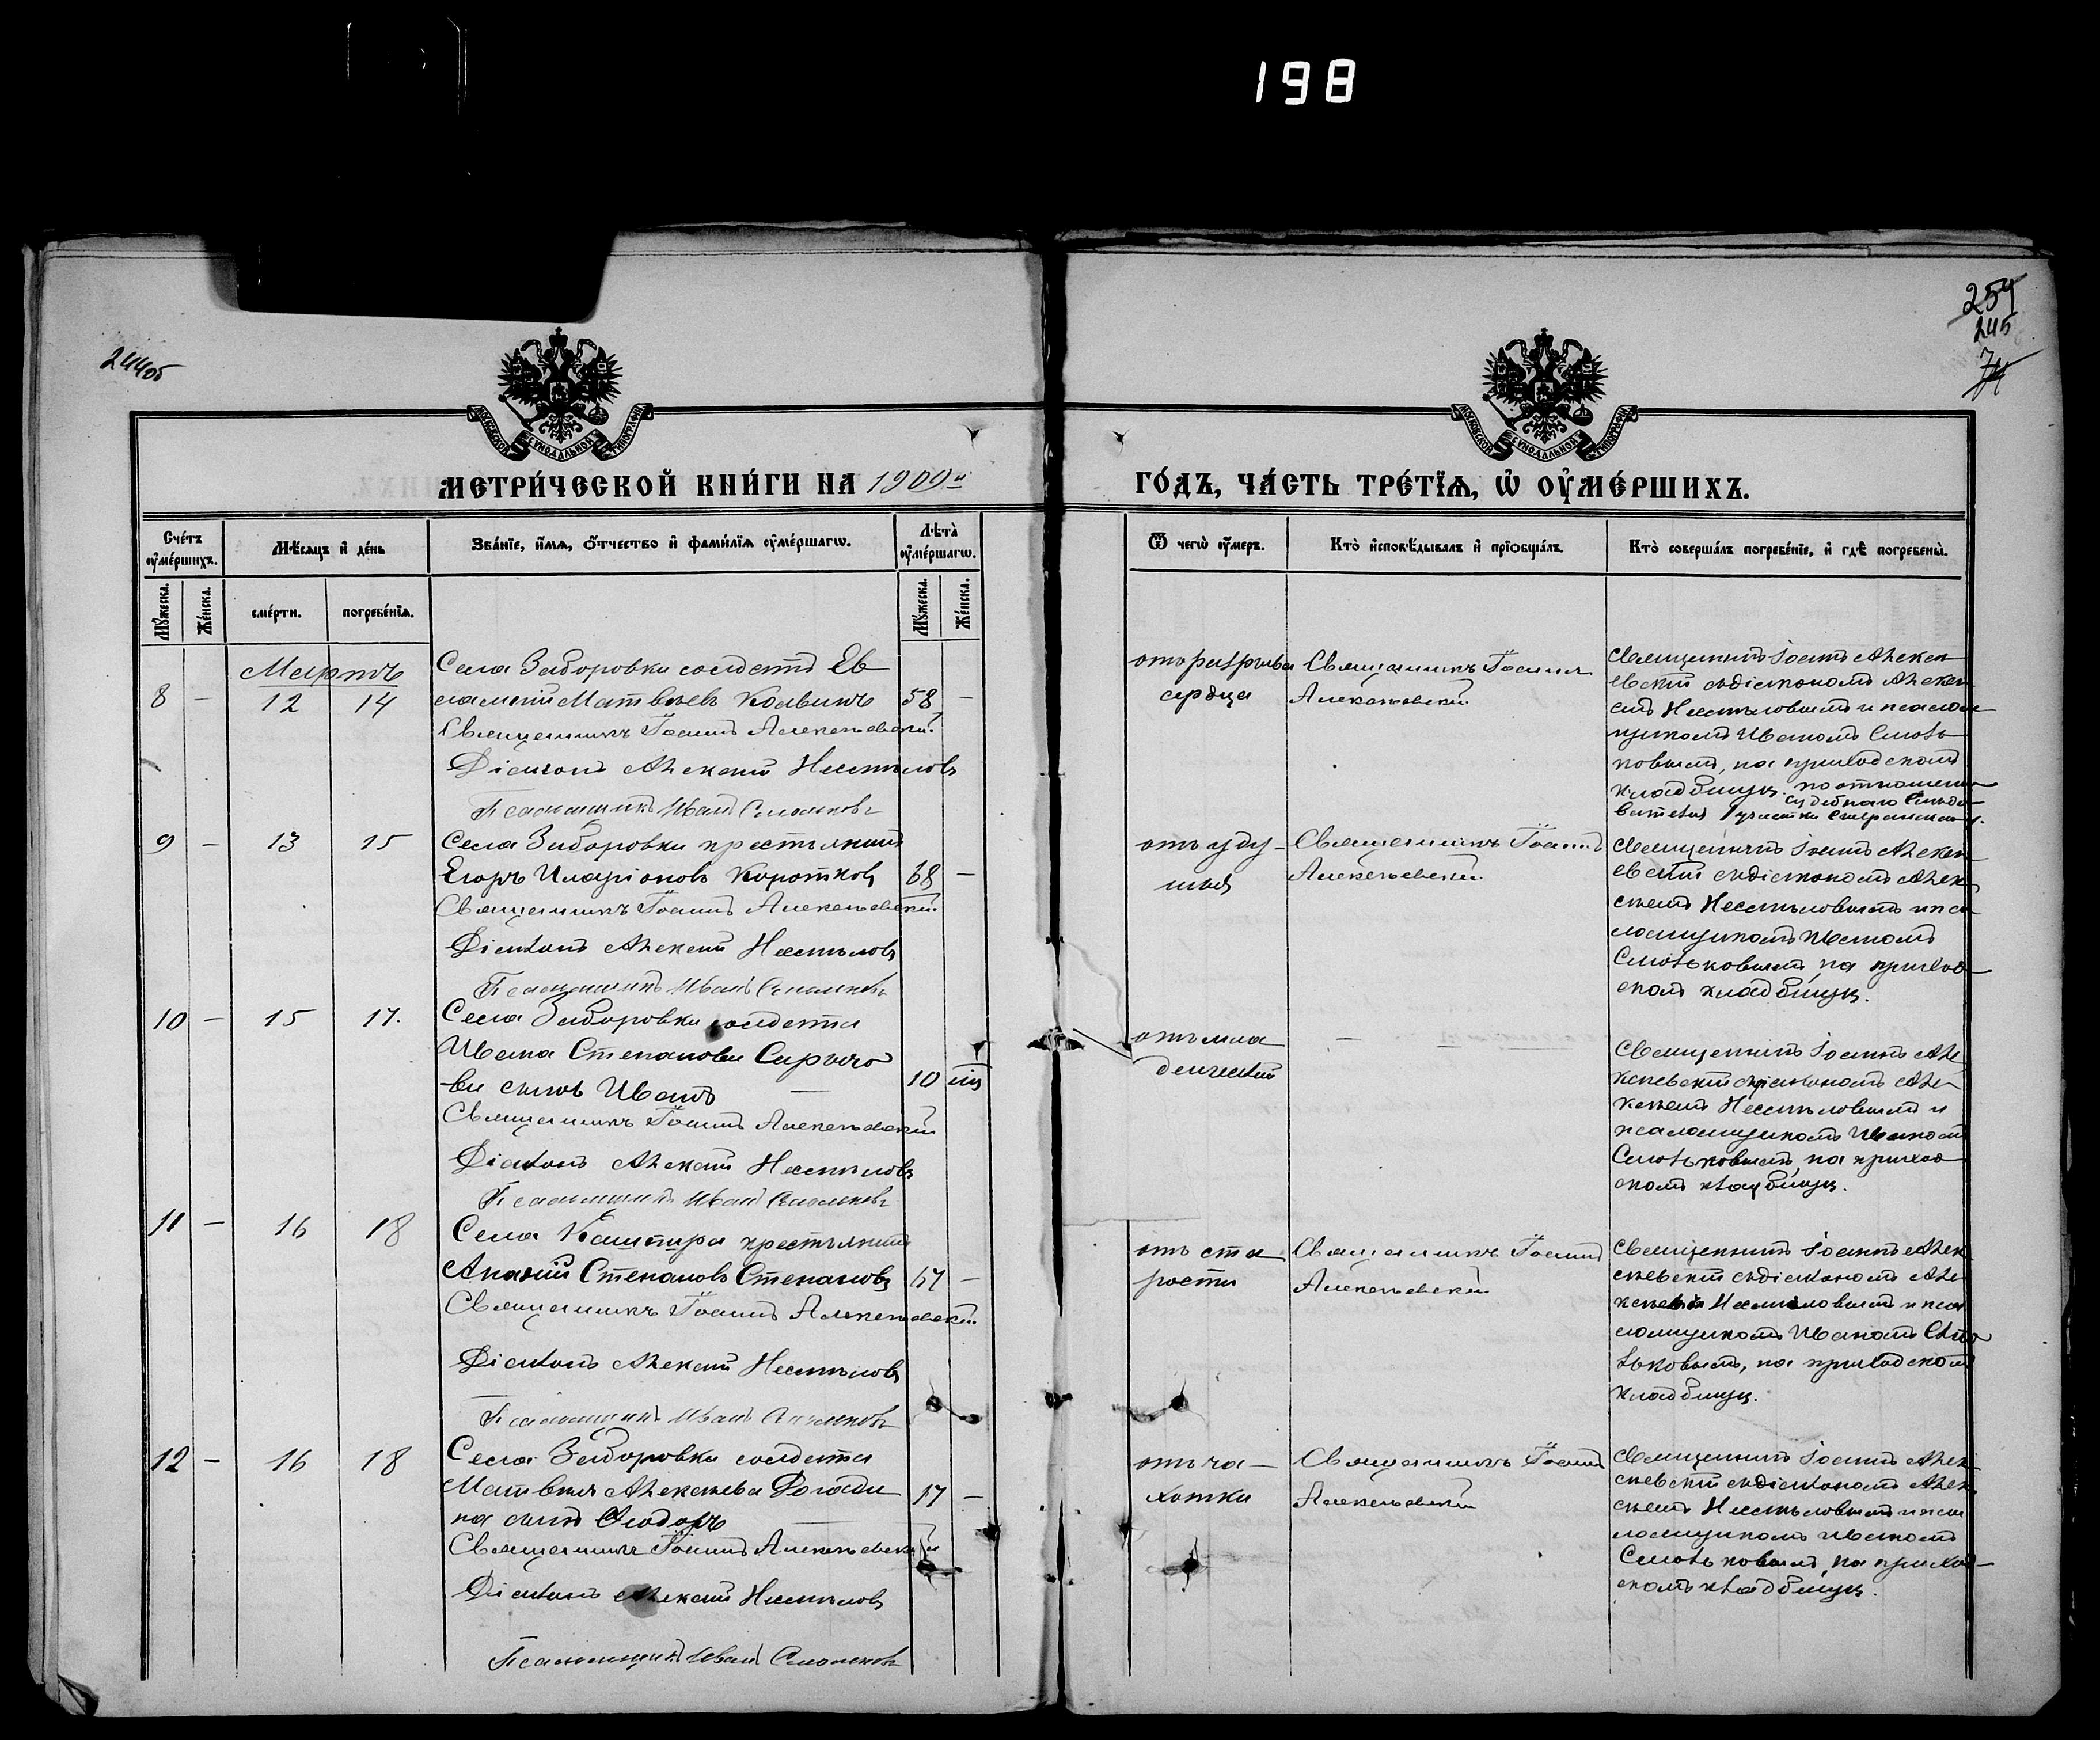 198
244об
254
245
74
МЕТРИ́ЧЕСКОЙ КНИ́ГИ НА 1909й
ГО́ДЪ, ЧА́СТЬ ТРЕ́ТЇѦ, Ѡ҆ ОУ҆МЕ́РШИХЪ.
Сче́тъ оу҆ме́ршихъ.
Мѣ́сяцъ и҆ де́нь
Зва́нїе, и҆́мѧ, о҆́тчество и҆ фами́лїѧ оу҆ме́ршагѡ.
Лѣ́та оу҆ме́ршагѡ.
Ѿ чегѡ̀ оу҆́меръ.
Кто̀ и҆сповѣ́дывалъ и҆ прїѡбща́лъ.
Кто̀ соверша́лъ погребе́нїе, и҆ гдѣ̀ погребены̀.
Мꙋ́жеска.
Же́нска.
сме́рти.
погребе́нїѧ.
Мꙋ́жеска.
Же́нска.
Мартъ
8 – 12 14
Села Заборовки солдатъ Ев
лампій Матвѣевъ Колвинъ 58 –
Священникъ Іоаннъ Алексѣевскій
Діаконъ Алексѣй Нестѣловъ
Псаломщикъ Иванъ Смольковъ
отъ разрыва
сердца
Священникъ Іоаннъ
Алексѣевскій
Священникъ Іоаннъ Алексѣ
евскій съ діакономъ Алексѣ
емъ Нестѣловымъ и псалом
щикомъ Иваномъ Смоль
ковымъ, на приходскомъ
кладбищѣ. по отношенію
судебнаго Слѣдо
вателя участка Сызранскаго у.
9 – 13 15
Села Заборовки крестьянинъ
Егоръ Иларіоновъ Коротковъ 68 –
Священникъ Іоаннъ Алексѣевскій
Діаконъ Алексѣй Нестѣловъ
Псаломщикъ Иванъ Смольковъ
отъ уду-
шья
Священникъ Іоаннъ
Алексѣевскій
Священникъ Іоаннъ Алексѣ
евскій съ діакономъ Алек
сѣемъ Нестѣловымъ и пса
ломщикомъ Иваномъ
Смольковымъ, на приход
скомъ кладбищѣ.
10 – 15 17.
Села Заборовки солдата
Ивана Степанова Сарычо
ва сынъ Иванъ 10 мц
Священникъ Іоаннъ Алексѣевскій
Діаконъ Алексѣй Нестѣловъ
Псаломщикъ Иванъ Смольковъ
отъ мла
денческой
– –
Священникъ Іоаннъ Але
ксѣевскій съ діакономъ Але
ксѣемъ Нестѣловымъ и
псаломщикомъ Иваномъ
Смольковымъ, на приход
скомъ кладбищѣ.
11 – 16 18
Села Кашпира крестьянинъ
Ананій Степановъ Степановъ 67 –
Священникъ Іоаннъ Алексѣевскій
Діаконъ Алексѣй Нестѣловъ
Псаломщикъ Иванъ Смольковъ
отъ ста
рости
Священникъ Іоаннъ
Алексѣевскій
Священникъ Іоаннъ Алек
сѣевскій съ діакономъ Але
ксѣемъ Нестѣловымъ и пса
ломщикомъ Иваномъ Смо
льковымъ, на приходскомъ
кладбищѣ.
12 – 16 18
Села Заборовки солдата
Матвѣя Алексѣева Рогади
на сынъ Ѳеодоръ 17 –
Священникъ Іоаннъ Алексѣевскій
Діаконъ Алексѣй Нестѣловъ
Псаломщикъ Иванъ Смольковъ
отъ ча-
хотки
Священникъ Іоаннъ
Алексѣевскій
Священникъ Іоаннъ Алек
сѣевскій съ діакономъ Алек
сѣемъ Нестѣловымъ и пса
ломщикомъ Иваномъ
Смольковымъ, на приход-
скомъ кладбищѣ.